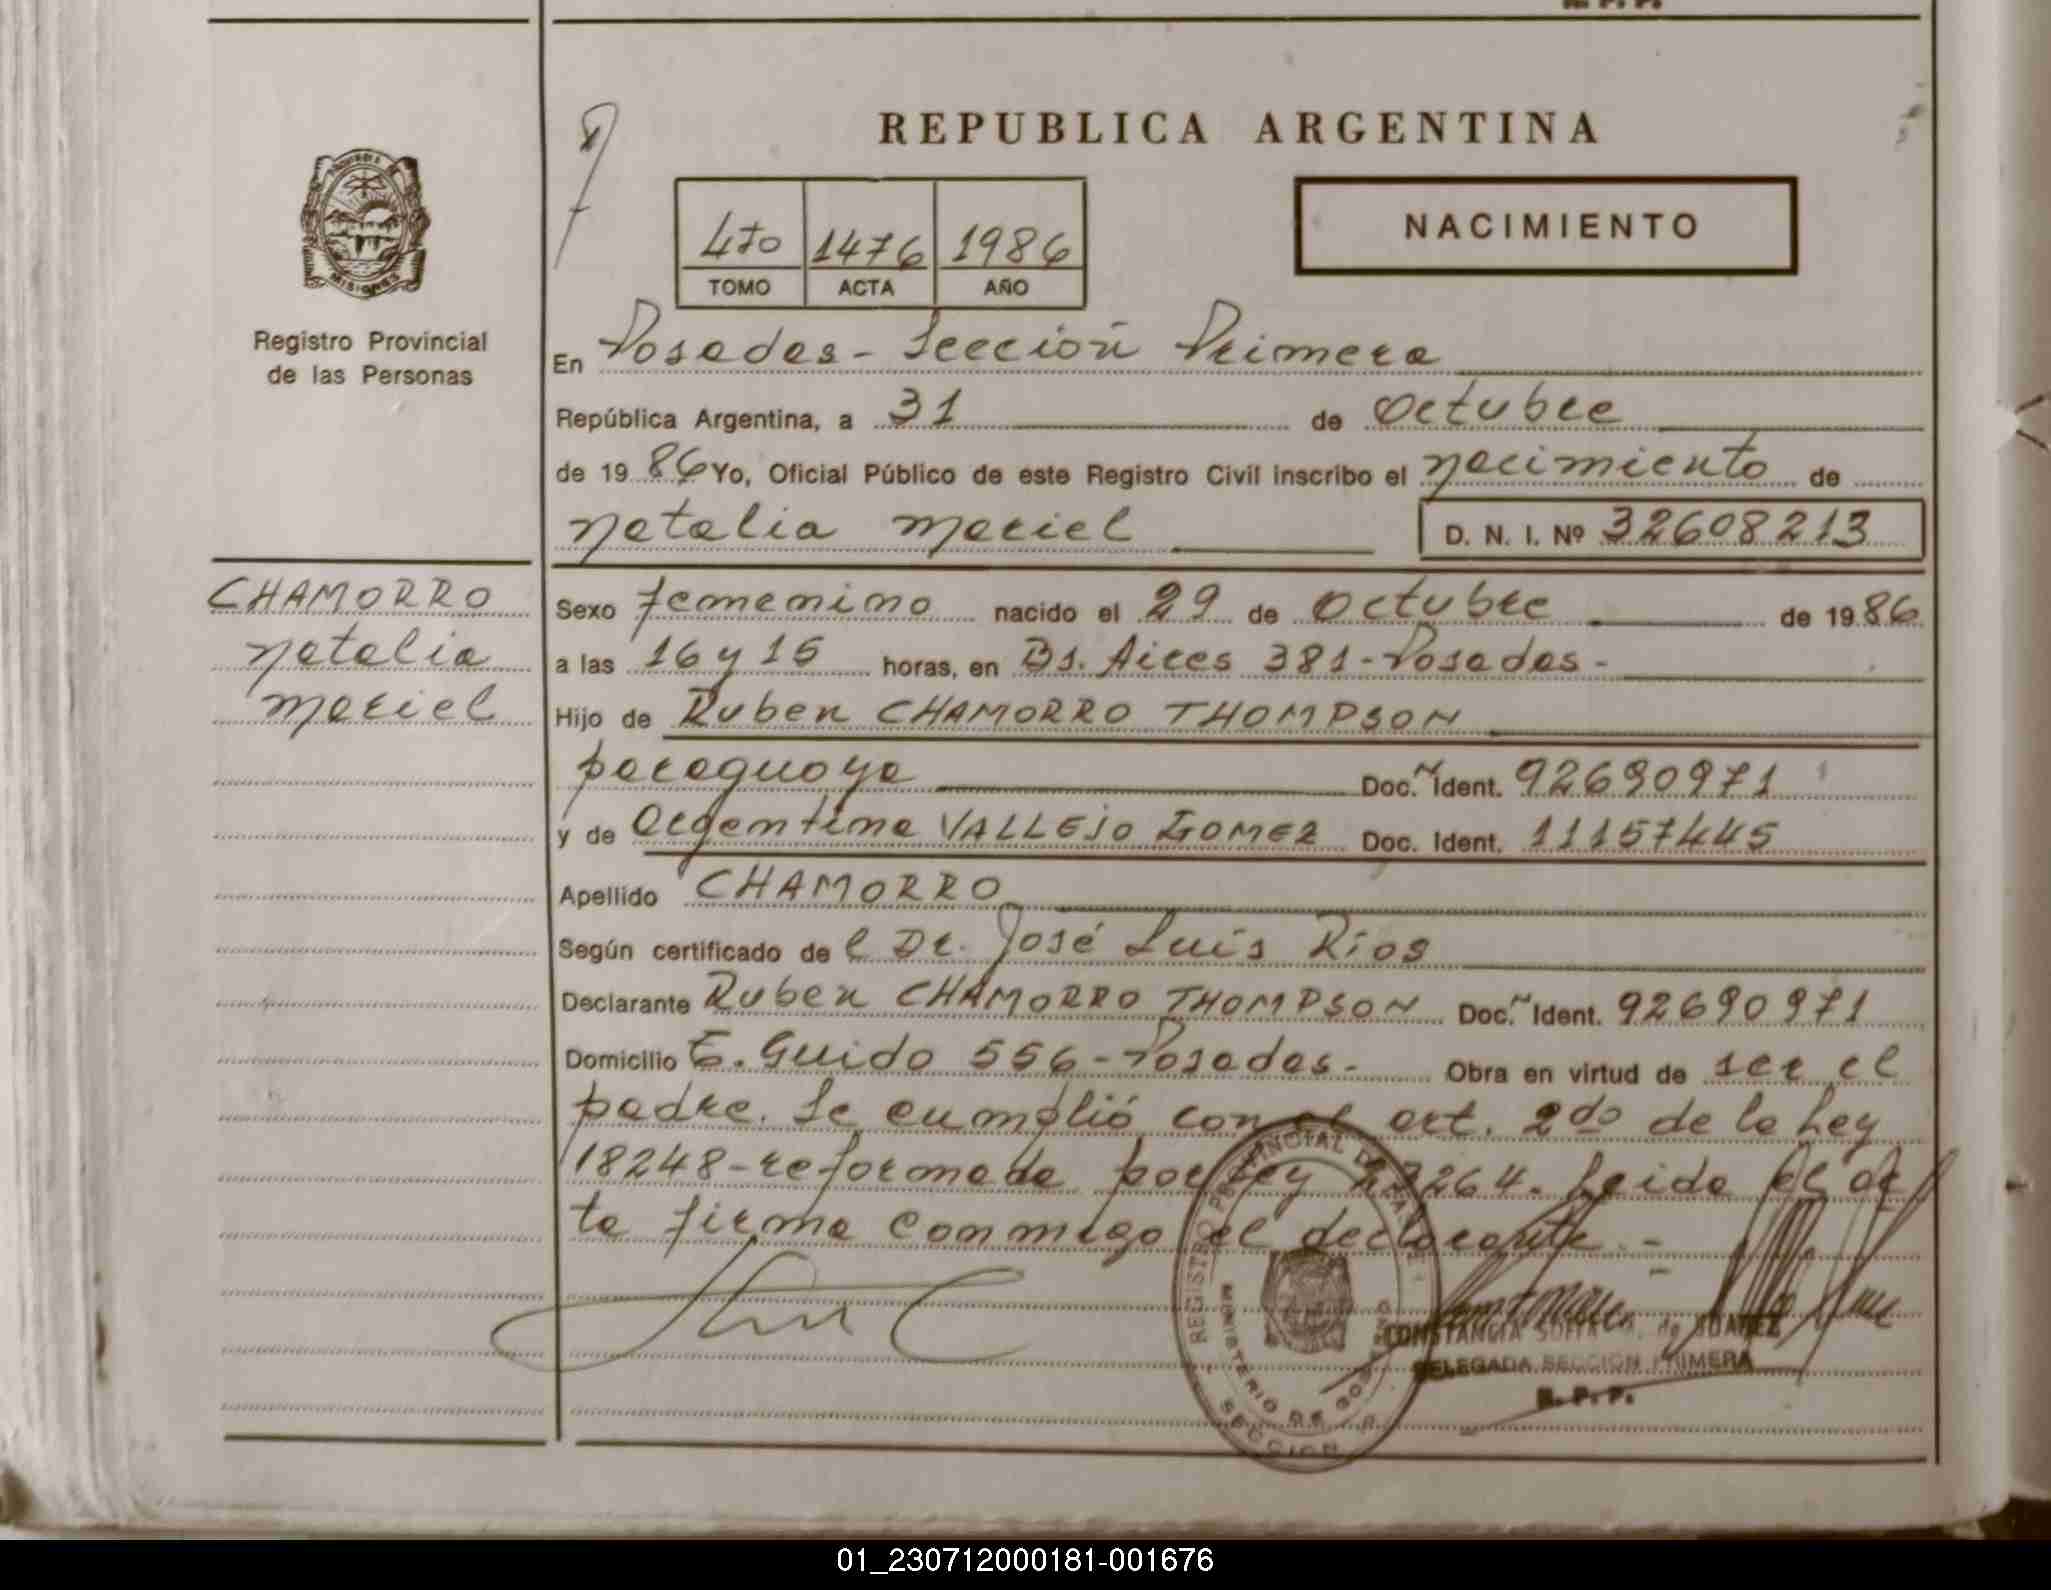 R. P. P.
REPUBLICA ARGENTINA
NACIMIENTO
4to 1476 1986
TOMO ACTA AÑO
MISIONES
Registro Provincial
de las Personas
En Posadas - Sección Primera
República Argentina, a 31 de octubre
de 1986 Yo, Oficial Público de este Registro Civil inscribo el nacimiento de
Natalia Mariel D. N. I. Nº 32608213
CHAMORRO
Natalia
Mariel
Sexo femenino nacido el 29 de octubre de 1986
a las 16 y 15 horas, en Bs. Aires 381 - Posadas -
Hijo de Ruben CHAMORRO THOMPSON
paraguaya Doc. Ident. 92690971
y de Argentina VALLEJO GOMEZ Doc. Ident. 11157445
Apellido CHAMORRO
Según certificado de l Dr. José Luis Ríos
Declarante Ruben CHAMORRO THOMPSON Doc. Ident. 92690971
Domicilio E. Guido 556 - Posadas - Obra en virtud de ser el
padre. Se cumplió con el art. 2do de la Ley
18248 - reformada por Ley 23264. Leida el ac
ta firma conmigo el declarante. -
REGISTRO PROVINCIAL DE LAS
MINISTERIO DE GOBIERNO
SECCION
CONSTANCIA SOFIA de SUAREZ
DELEGADA SECCION PRIMERA
R. P. P.
01_230712000181-001676